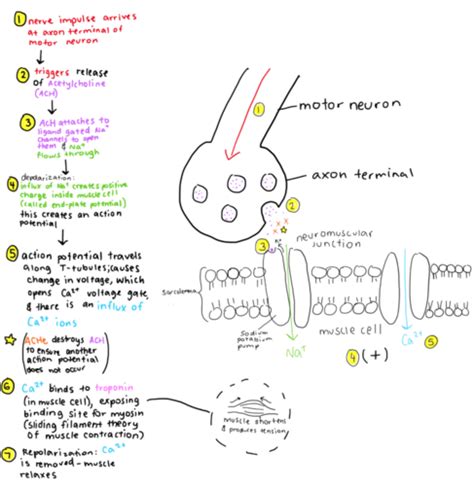 1 nerve impulse arrives
at axon terminal of
motor neuron
2 triggers release
of Acetylcholine
(ACH)
3 ACH attaches to
ligand gated Na+
channels to open
them & Na+
flows through
4 depolarization:
influx of Na+ creates positive
charge inside muscle cell
(called end-plate potential)
this creates an action
potential
5 action potential travels
along T-tubules; causes
change in voltage, which
opens Ca2+ voltage gate,
& there is an influx of
Ca2+ ions
ACHe destroys ACH
to ensure another
action potential
does not occur
6 Ca2+ binds to troponin
(in muscle cell), exposing
binding site for myosin
(sliding filament theory
of muscle contraction)
7 Repolarization: Ca2+
is removed - muscle
relaxes
1
motor neuron
axon terminal
2
3
neuromuscular
junction
sarcolemma
sodium
potassium
pump
Na+
muscle cell
4 (+)
Ca2+
5
muscle shortens
& produces tension